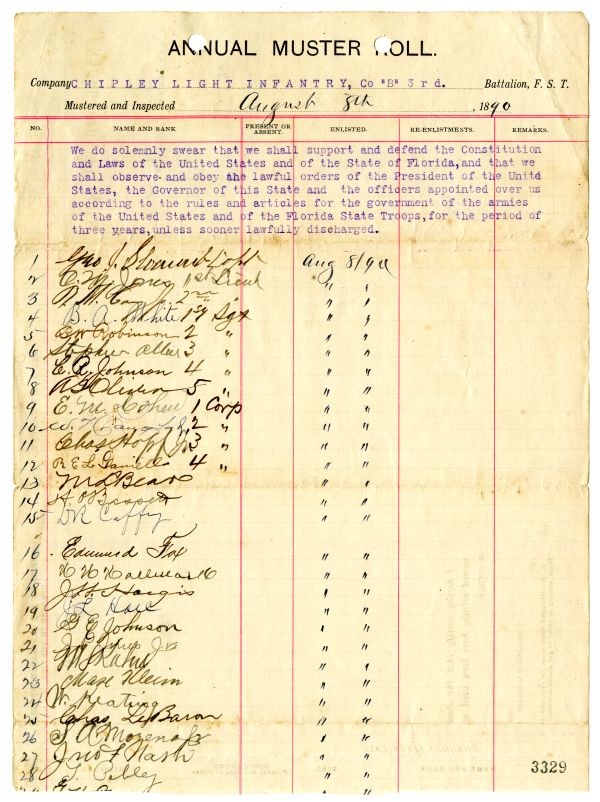 ANNUAL MUSTER ROLL.
Company CHIPLEY LIGHT INFANTRY, Co "B" 3rd. Battalion, F. S. T.
Mustered and Inspected August 8th , 1890
NO. NAME AND RANK PRESENT OR ABSENT. ENLISTED. RE-ENLISTMENTS. REMARKS.
We do solemnly swear that we shall support and defend the Constitution
and Laws of the United States and of the State of Florida,and that we
shall observe and obey the lawful orders of the President of the Unitd
States, the Governor of this State and the officers appointed over us
according to the rules and articles for the government of the armies
of the United States and of the Florida State Troops,for the period of
three years,unless sooner lawfully discharged.
1 Geo J. Capt Aug 8/90
2 C. M. Jones 1st Lieut " "
3 2nd " " "
4 B. A. White 1st Sgt " "
5 Robinson 2 " " "
6 Stephen Allen 3 " " "
7 C. A. Johnson 4 " " "
8 Oliveira 5 " " "
9 E. M. Cohen 1 Corp " "
10 2 " " "
11 Chas Hopp Jr 3 " " "
12 R E L Daniell 4 " " "
13 Bear " "
14 " "
15 D K Caffy " "
16 Edmund Fox " "
17 " "
18 Hargis " "
19 Hall " "
20 G E Johnson " "
21 Jr " "
22 M Kahn " "
23 Max Kleim " "
24 W. Keating " "
25 Chas. Le Baron " "
26 S A Moreno Jr " "
27 Jno L Nash " "
28 " "
3329